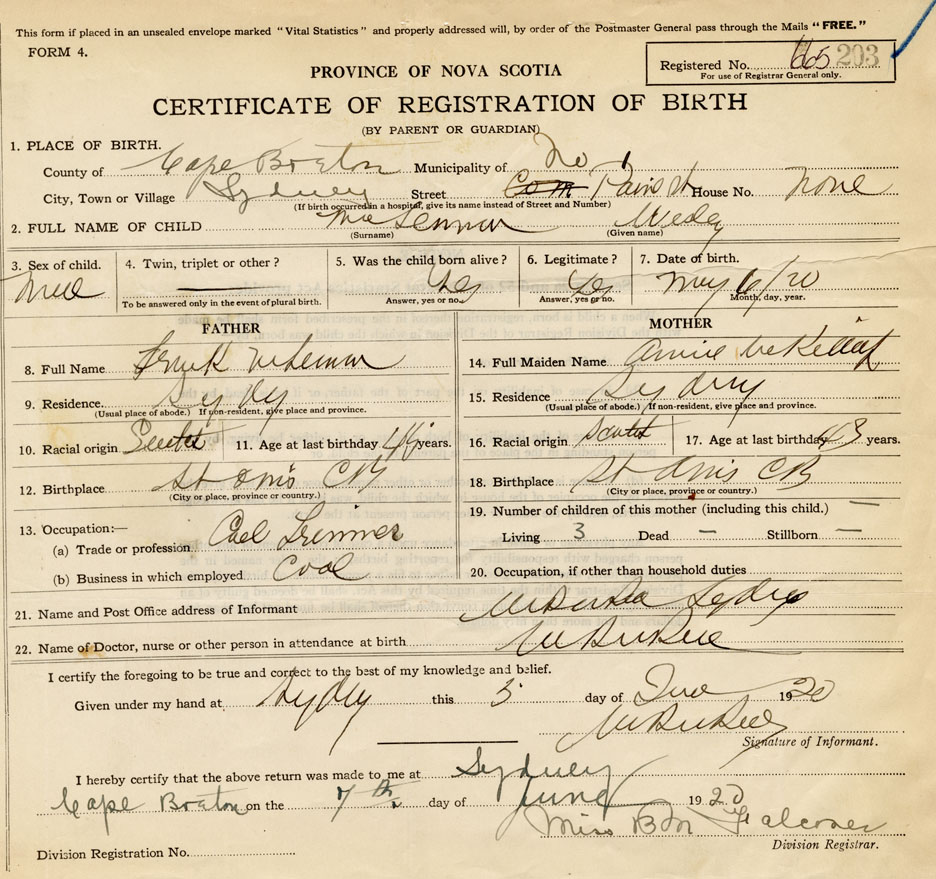 This form if placed in an unsealed envelope marked "Vital Statistics" and properly addressed will, by order of the Postmaster General pass through the Mails "FREE."
FORM 4.
Registered No. 665 203
For use of Registrar General only.
PROVINCE OF NOVA SCOTIA
CERTIFICATE OF REGISTRATION OF BIRTH
(BY PARENT OR GUARDIAN)
1. PLACE OF BIRTH.
County of Cape Breton Municipality of No 1
City, Town or Village Sydney Street House No. None
(If birth occurred in a hospital, give its name instead of Street and Number)
2. FULL NAME OF CHILD
(Surname) (Given name)
3. Sex of child. 4. Twin, triplet or other? 5. Was the child born alive? 6. Legitimate? 7. Date of birth.
Yes Yes May 6/20
To be answered only in the event of plural birth. Answer, yes or no. Answer, yes or no. Month, day, year.
FATHER MOTHER
8. Full Name 14. Full Maiden Name Annie
9. Residence Sydney 15. Residence Sydney
(Usual place of abode.) If non-resident, give place and province. (Usual place of abode.) If non-resident, give place and province.
10. Racial origin 11. Age at last birthday 46 years. 16. Racial origin 17. Age at last birthday 43 years.
12. Birthplace St Anns CB 18. Birthplace St Anns CB
(City or place, province or country.) (City or place, province or country.)
13. Occupation:— 19. Number of children of this mother (including this child.) —
(a) Trade or profession Living 3 Dead — Stillborn —
(b) Business in which employed Coal 20. Occupation, if other than household duties
21. Name and Post Office address of Informant Sydney
22. Name of Doctor, nurse or other person in attendance at birth
I certify the foregoing to be true and correct to the best of my knowledge and belief.
Given under my hand at Sydney this 5 day of June 1920
Signature of Informant.
I hereby certify that the above return was made to me at Sydney
Cape Breton on the 7th day of June 1920
Miss B M Falconer
Division Registrar.
Division Registration No.